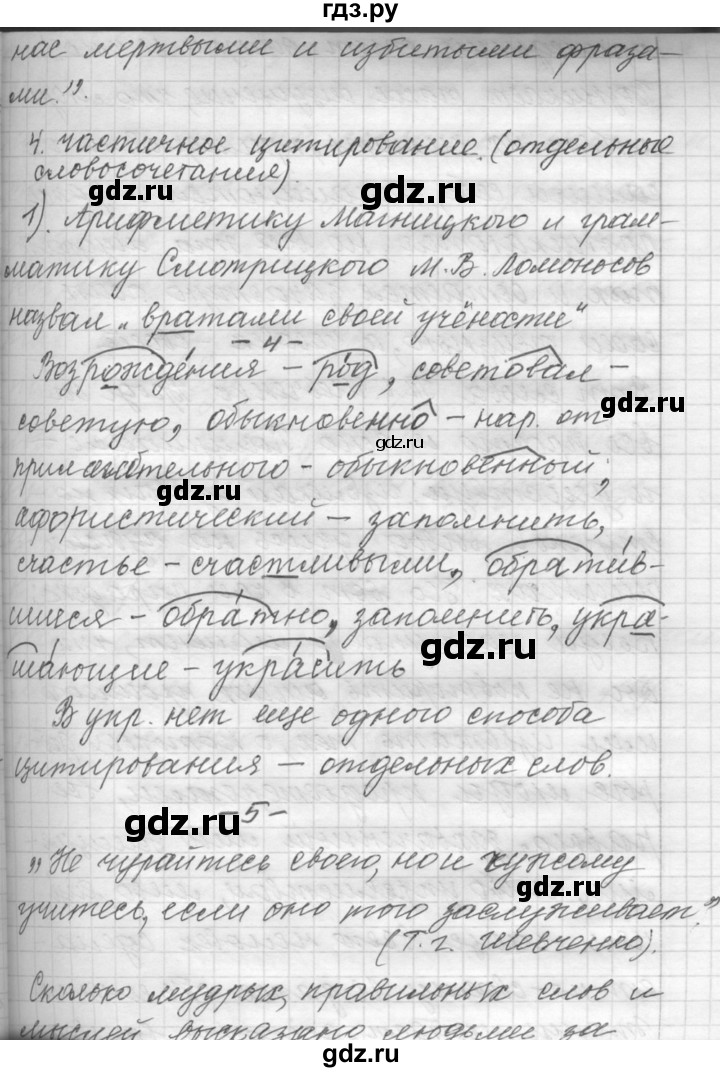 гдз.ру
нас мертвыми и избитыми фраза-
ми.".
4. частичное цитирование. (отдельные
словосочетания).
gdz.ru gdz.ru
1). Арифметику Магницкого и грам-
матику Смотрицкого М. В. Ломоносов
gdz.ru gdz.ru
назвал „вратами своей учёности"
- 4 -
Возрождения – род, советовал –
gdz.ru gdz.ru
советую, обыкновенно – нар. от
gdz.ru
прилагательного – обыкновенный;
gdz.ru gdz.ru
афористический – запомнить,
счастье – счастливыми, обратив-
gdz.ru
шиеся – обратно, запомнить, укра-
gdz.ru
шающие – украсить
В упр. нет еще одного способа
gdz.ru
цитирования – отдельных слов.
gdz.ru
- 5 -
„Не чурайтесь своего, но и чужому
gdz.ru gdz.ru
учитесь, если оно того заслуживает."
(Т. Г. Шевченко).
Сколько мудрых, правильных слов и
gdz.ru gdz.ru
мыслей высказано людьми за
gdz.ru